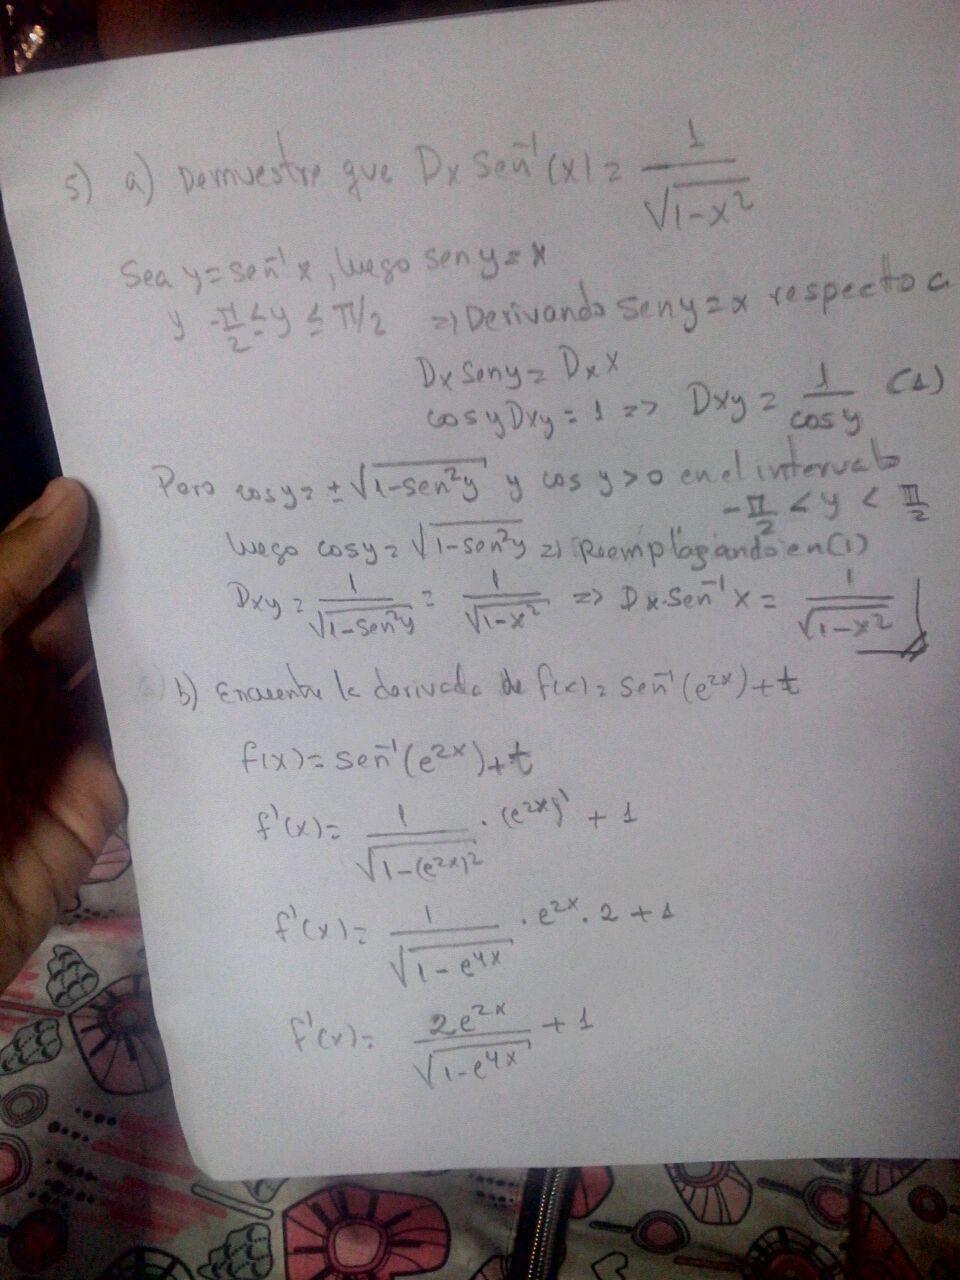 5) a) Demuestre que Dx Sen⁻¹(x) = 1/√(1-x²)
Sea y = sen⁻¹ x, luego sen y = x
y -π/2 ≤ y ≤ π/2 => Derivando sen y = x respecto a
Dx Sen y = Dx x
cos y Dxy = 1 => Dxy = 1/cos y (1)
Pero cos y = ±√(1-sen²y) y cos y > 0 en el intervalo
-π/2 < y < π/2
luego cos y = √(1-sen²y) => Reemplazando en (1)
Dxy = 1/√(1-sen²y) = 1/√(1-x²) => Dx Sen⁻¹ x = 1/√(1-x²)
b) Encuentre la derivada de f(x) = Sen⁻¹(e^2x) + t
f(x) = sen⁻¹(e^2x) + t
f'(x) = 1/√(1-(e^2x)²) · (e^2x)' + 1
f'(x) = 1/√(1-e^4x) · e^2x · 2 + 1
f'(x) = 2e^2x/√(1-e^4x) + 1